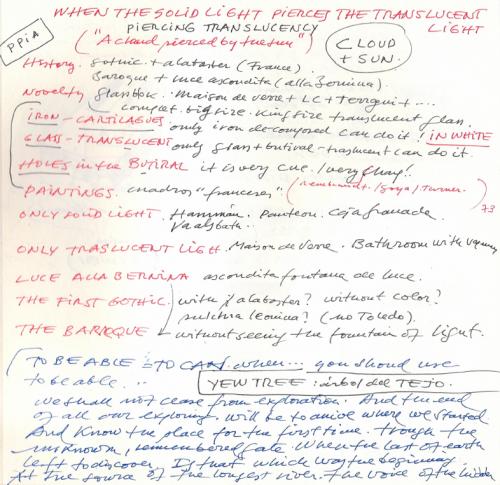 WHEN THE SOLID LIGHT PIERCES THE TRANSLUCENT LIGHT
PPiA
PIERCING TRANSLUCENCY
("A cloud pierced by the sun")
CLOUD + SUN.
History. Gothic. + alabaster (France)
Baroque + luce ascondita (alla Bernina).
Novelty glassblock. Maison de verre + LC + Terragni + ...
complet. big size. King size translucent glass.
IRON - CARTILAGUES only iron decomposed can do it! IN WHITE
GLASS - TRANSLUCENT only glass + butiral - traslucent can do it.
HOLES in the BUTIRAL it is very / very
PAINTINGS. cuadros "franceses" (rembrandt. / Goya / turner.)
73
ONLY SOLID LIGHT. Hammám. Panteon. Caja Granada.
ONLY TRASLUCENT LIGH. Maison de Verre. Bathroom with
LUCE ALLA BERNINA ascondita fontana de luce.
THE FIRST GOTHIC. with alabaster? without color?
leonina? (no Toledo).
THE BAROCQUE - without seeing the fountain of light.
TO BE ABLE = TO CAN. when... you should use
to be able...
YEW TREE: árbol del TEJO.
We shall not cease from exploration. And the end
of all our exploring. will be to arrive where we started
And know the place for the first time. Though the
unknown, remembered gate. When the last of earth
left to discover. Is that which was the beginning.
At the source of the longest river. The voice of the hidden